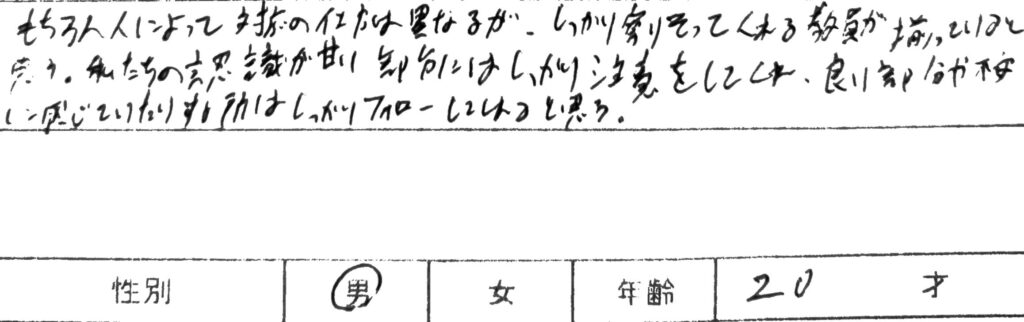 もちろん人によって対応の仕方は異なるが、しっかり寄りそってくれる教員が揃っていると
思う。私たちの意識が甘い部分にはしっかり注意をしてくれ、良い部分や不安
に感じていたりする所はしっかりフォローしてくれると思う。
性別 男 女 年齢 20 才